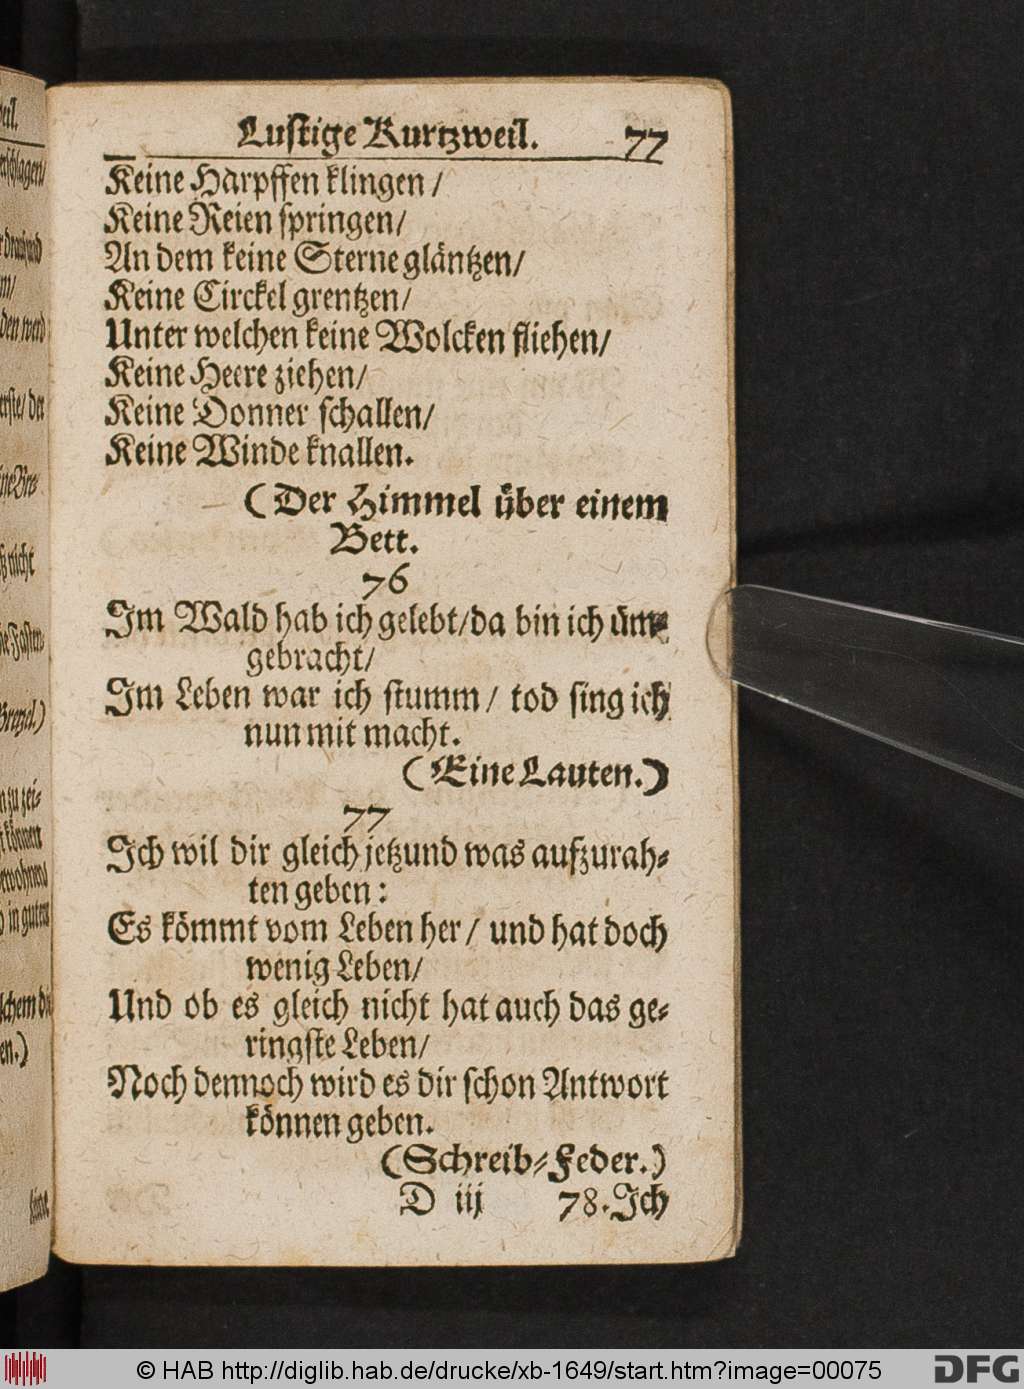 Lustige Kurtzweil. 77
Keine Harpffen klingen /
Keine Reien springen/
An dem keine Sterne gläntzen/
Keine Circkel grentzen/
Unter welchen keine Wolcken fliehen/
Keine Heere ziehen/
Keine Donner schallen/
Keine Winde knallen.
(Der Himmel über einem
Bett.
76
Im Wald hab ich gelebt/da bin ich üm⸗
gebracht/
Im Leben war ich stumm/ tod sing ich
nun mit macht.
(Eine Lauten.)
77
Ich wil dir gleich jetzund was aufzurah⸗
ten geben:
Es kömmt vom Leben her/ und hat doch
wenig Leben/
Und ob es gleich nicht hat auch das ge⸗
ringste Leben/
Noch dennoch wird es dir schon Antwort
können geben.
(Schreib⸗Feder.)
D iij 78. Ich
© HAB http://diglib.hab.de/drucke/xb-1649/start.htm?image=00075
DFG